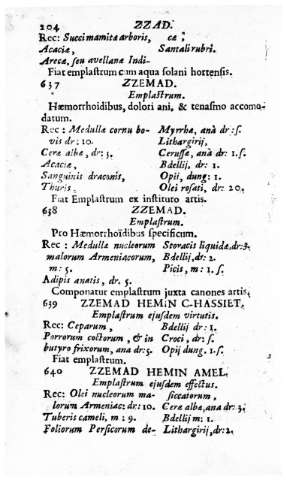 204 ZZAD.
Rec: Succi mamitæ arboris, cæ;
Acaciæ, Santali rubri.
Arecæ, seu avellanæ Indi-
Fiat emplastrum cum aqua solani hortensis.
637 ZZEMAD.
Emplastrum.
Hæmorrhoidibus, dolori ani, & tenasmo accomo-
datum.
Rec: Medullæ cornu bo- Myrrhæ, anà dr: ſ.
vis dr: 10. Lithargirij,
Ceræ albæ, dr: 3. Cerussæ, anà dr: 1. ſ.
Acaciæ, Bdellij, dr: 1.
Sanguinis draconis, Opij, dung: 1.
Thuris, Olei rosati, dr: 20.
Fiat Emplastrum ex instituto artis.
638 ZZEMAD.
Emplastrum.
Pro Hæmorrhoïdibus specificum.
Rec: Medullæ nucleorum Storacis liquidæ, dr:3.
malorum Armeniacorum, Bdellij, dr: 2.
m: 5. Picis, m: 1. ſ.
Adipis anatis, dr. 5.
Componatur emplastrum juxta canones artis,
639 ZZEMAD HEMIN C-HASSIET.
Emplastrum ejusdem virtutis.
Rec: Ceparum, Bdellij dr: 1.
Porrorum coctorum, & in Croci, dr: ſ.
butyro frixorum, ana dr:5. Opij dung. 1. ſ.
Fiat emplastrum.
640 ZZEMAD HEMIN AMEL.
Emplastrum ejusdem effectus.
Rec: Olei nucleorum ma- siccatorum,
lorum Armeniac: dr: 10. Ceræ albæ, ana dr: 3.
Tuberis cameli, m: 9. Bdellij m: 1.
Foliorum Persicorum de- Lithargirij, dr: 2.